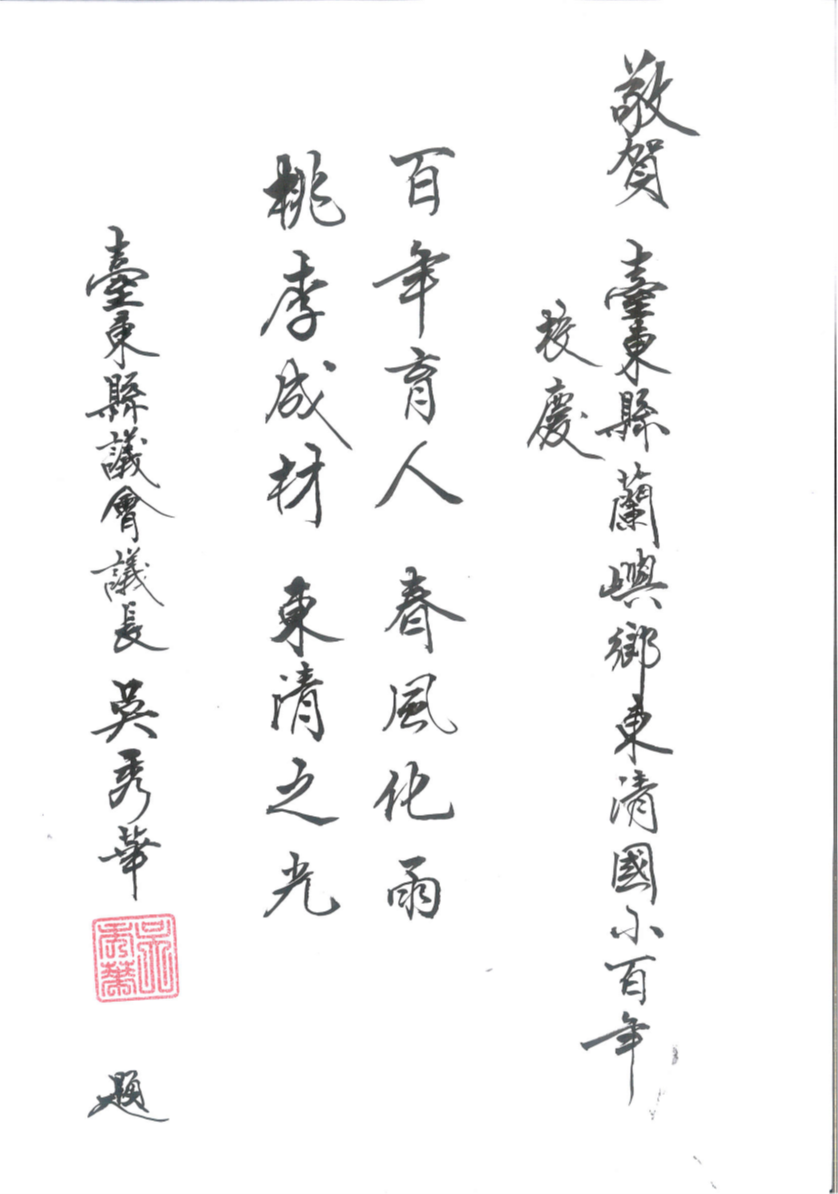 敬賀 臺東縣蘭嶼鄉東清國小百年
校慶
百年育人 春風化雨
桃李成材 東清之光
臺東縣議會議長 吳秀華
吳秀華
題